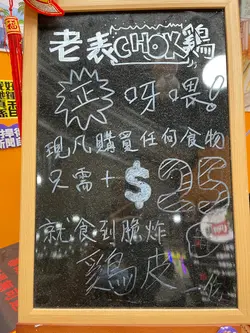 老表CHOK鷄
正 呀喂!
現凡購買任何食物
只需+$25
就食到脆炸
鷄皮